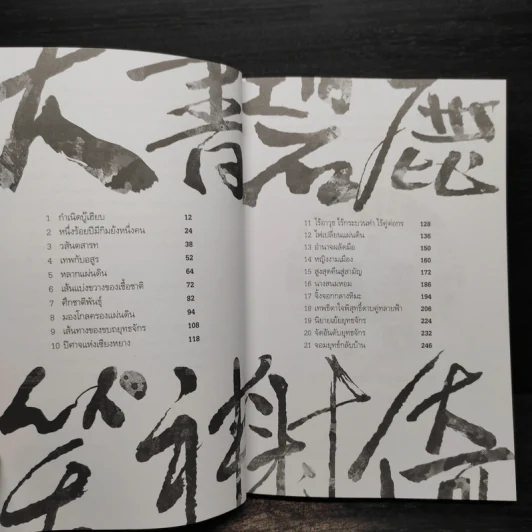 1 กำเนิดบู๊เฮียบ 12
2 หนึ่งร้อยปีมีกิมย้งหนึ่งคน 24
3 วสันตสารท 38
4 เทพกับอสูร 52
5 หลากแผ่นดิน 64
6 เส้นแบ่งขวางของเชื้อชาติ 72
7 ศึกชาติพันธุ์ 82
8 มองโกลครองแผ่นดิน 94
9 เส้นทางของขบถยุทธจักร 108
10 ปีศาจแห่งเซียงหยาง 118
11 ไร้อาวุธ ไร้กระบวนท่า ไร้คู่ต่อกร 128
12 ไฟเปลี่ยนแผ่นดิน 136
13 อำนาจผลัดมือ 150
14 หญิงงามเมือง 160
15 สูงสุดคืนสู่สามัญ 172
16 นางสนมหอม 186
17 จิ้งจอกกลางหิมะ 194
18 เทพธิดาใจพิสุทธิ์ดาบคู่ทลายฟ้า 206
19 นิยายเย้ยยุทธจักร 224
20 จัดอันดับยุทธจักร 232
21 จอมยุทธ์กลับบ้าน 246
書 碧 鹿
笑 神 射 倚